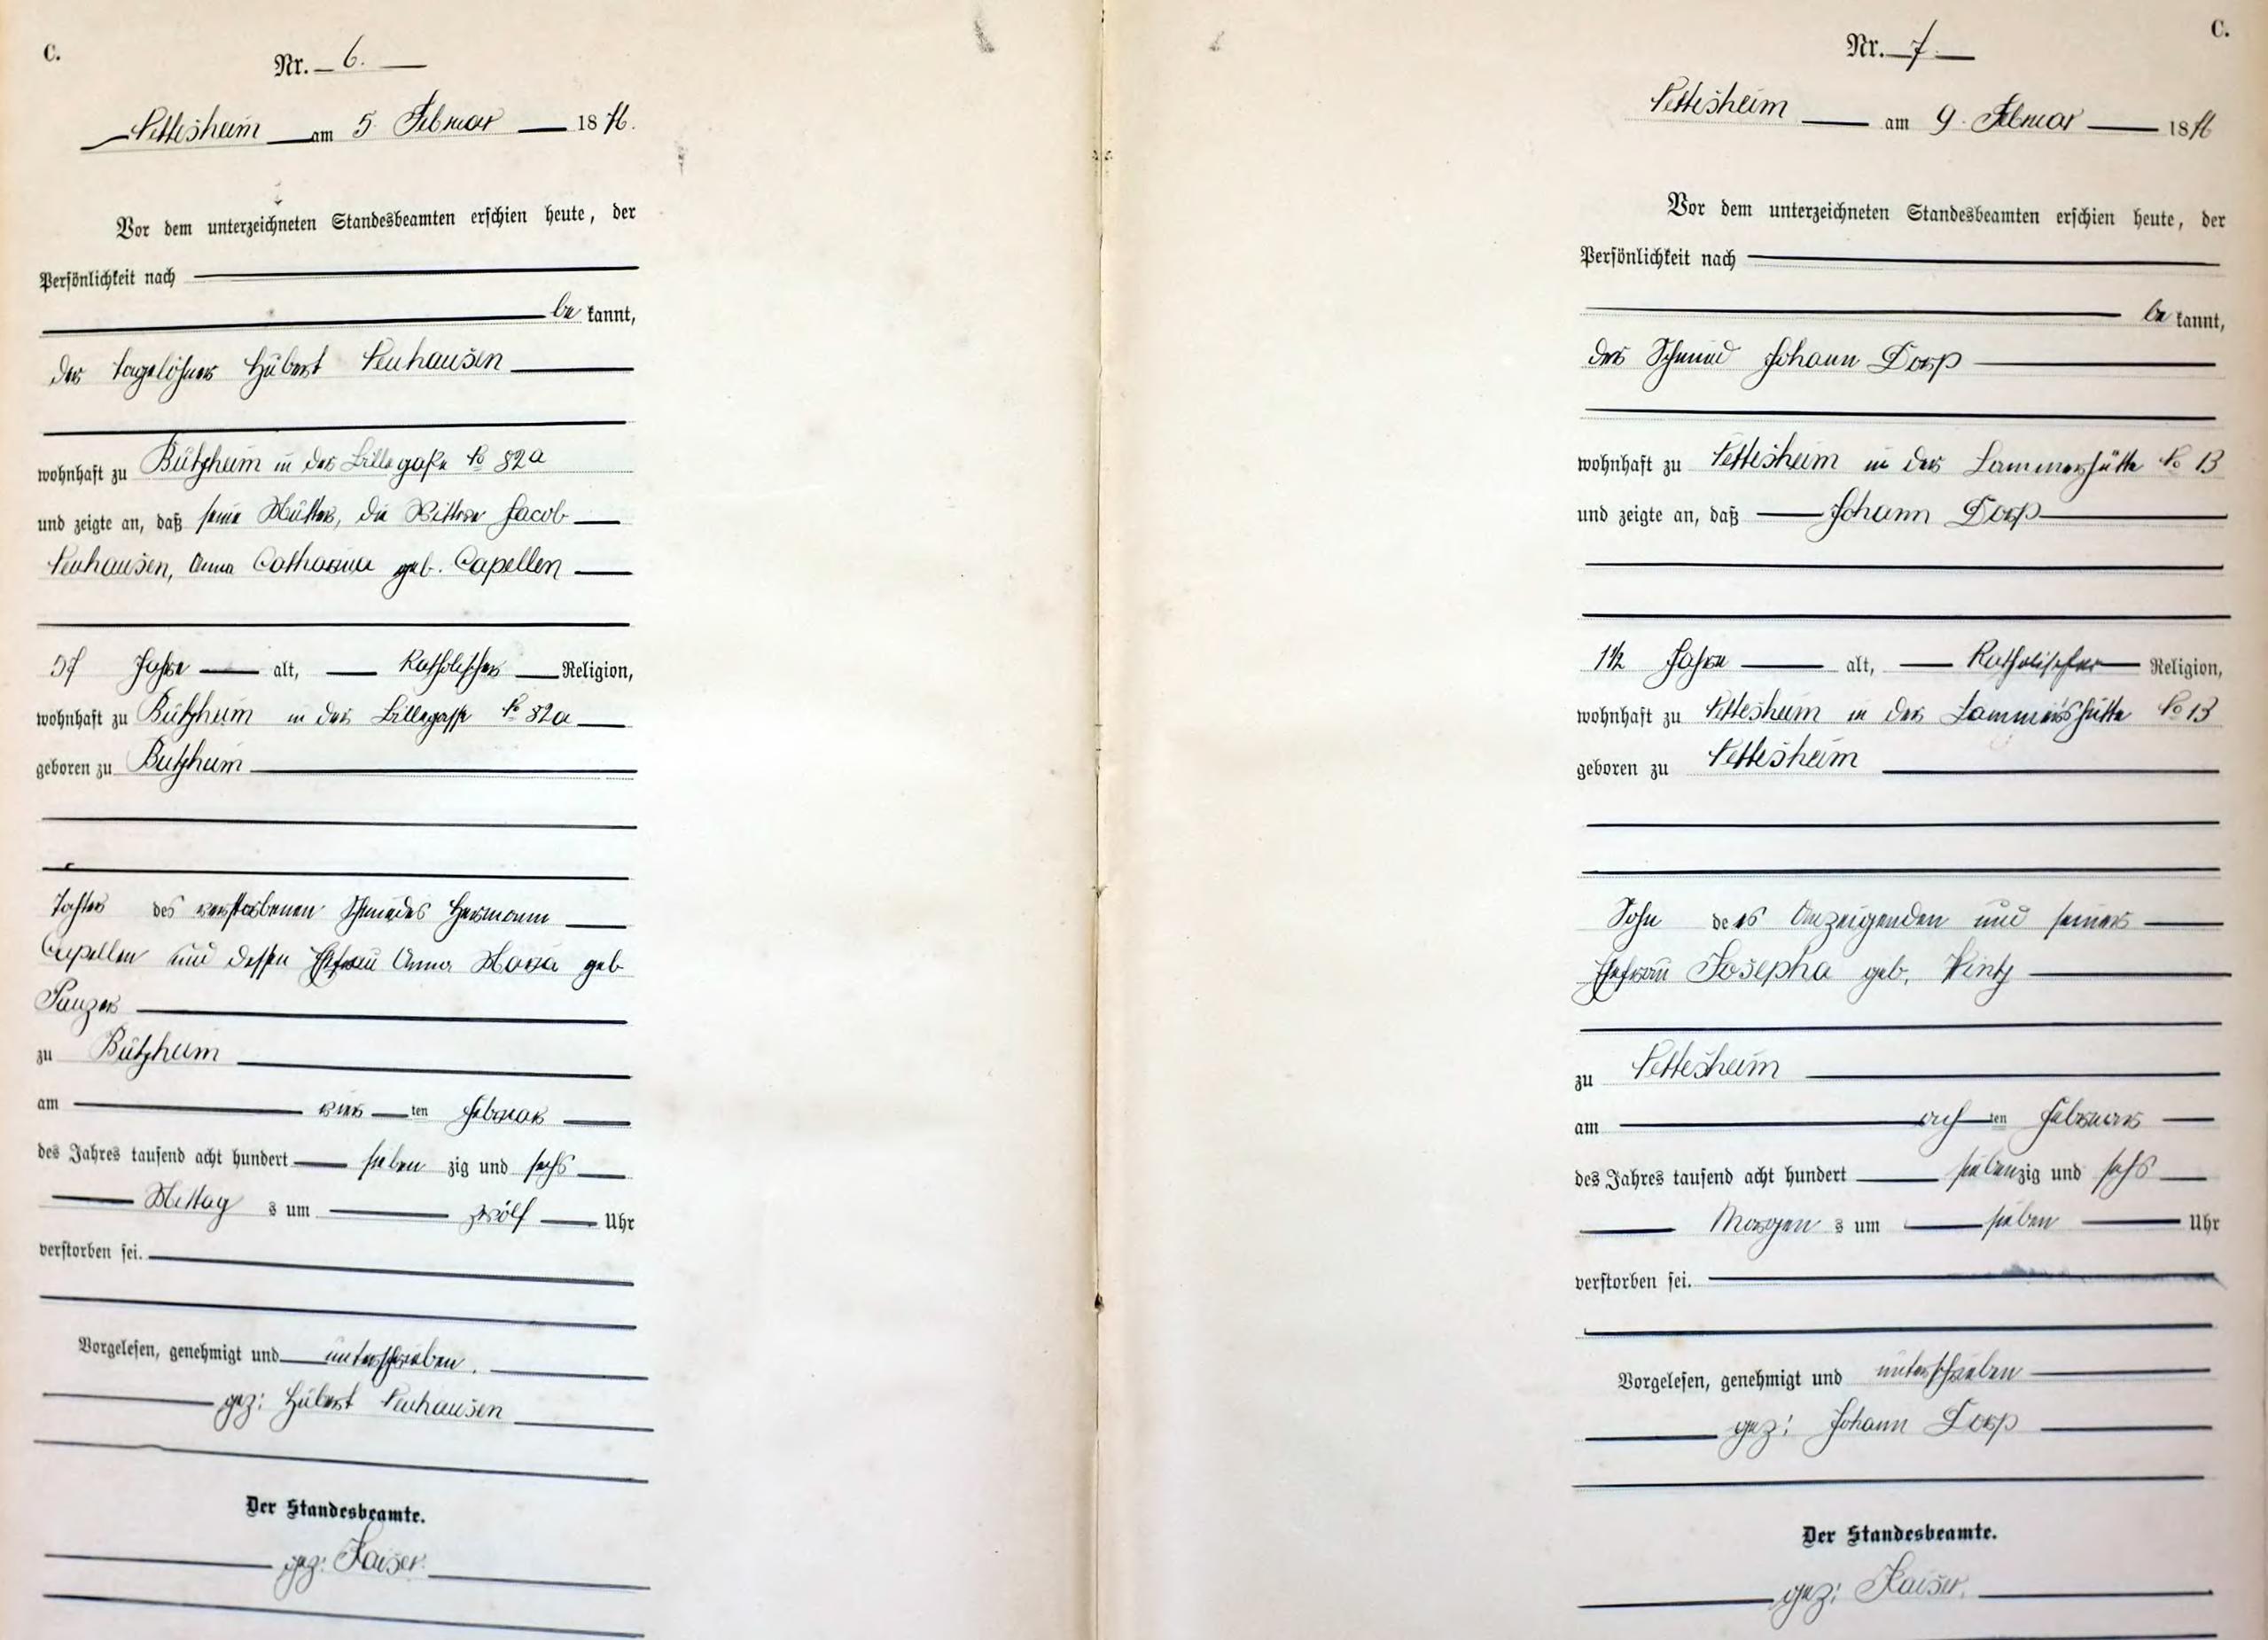 C.
Nr. 6.
Nettesheim am 5. Februar 1876.
Vor dem unterzeichneten Standesbeamten erschien heute, der
Persönlichkeit nach
be kannt,
der Tagelöhner Hubert Neuhausen
wohnhaft zu Bützheim in der Lillegaße No 82a
und zeigte an, daß seine Mutter, die Wittwe Jacob
Neuhausen, Anna Catharina geb. Capellen
57 Jahre alt, Katholischer Religion,
wohnhaft zu Bützheim in der Lillegasse No 82a
geboren zu Butzheim
Tochter des verstorbenen Schmiedes Hermann
Capellen und dessen Ehefrau Anna Maria geb
Panzer
zu Bützheim
am vier ten Februar
des Jahres tausend acht hundert sieben zig und sechs
Mittag s um zwölf Uhr
verstorben sei.
Vorgelesen, genehmigt und unterschrieben.
gez: Hubert Neuhausen
Der Standesbeamte.
gez: Kaiser.
C.
Nr. 7
Nettesheim am 9. Februar 1876
Vor dem unterzeichneten Standesbeamten erschien heute, der
Persönlichkeit nach
be kannt,
der Schmied Johann Dorp
wohnhaft zu Nettesheim in der Lammershütte No 13
und zeigte an, daß Johann Dorp
1½ Jahre alt, Katholischer Religion,
wohnhaft zu Nettesheim in der Lammershütte No 13
geboren zu Nettesheim
Sohn des Anzeigenden und seiner
Ehefrau Josepha geb. Wintz
zu Nettesheim
am ach ten Februar
des Jahres tausend acht hundert siebenzig und sechs
Morgen s um sieben Uhr
verstorben sei.
Vorgelesen, genehmigt und unterschrieben
gez: Johann Dorp
Der Standesbeamte.
gez: Kaiser.